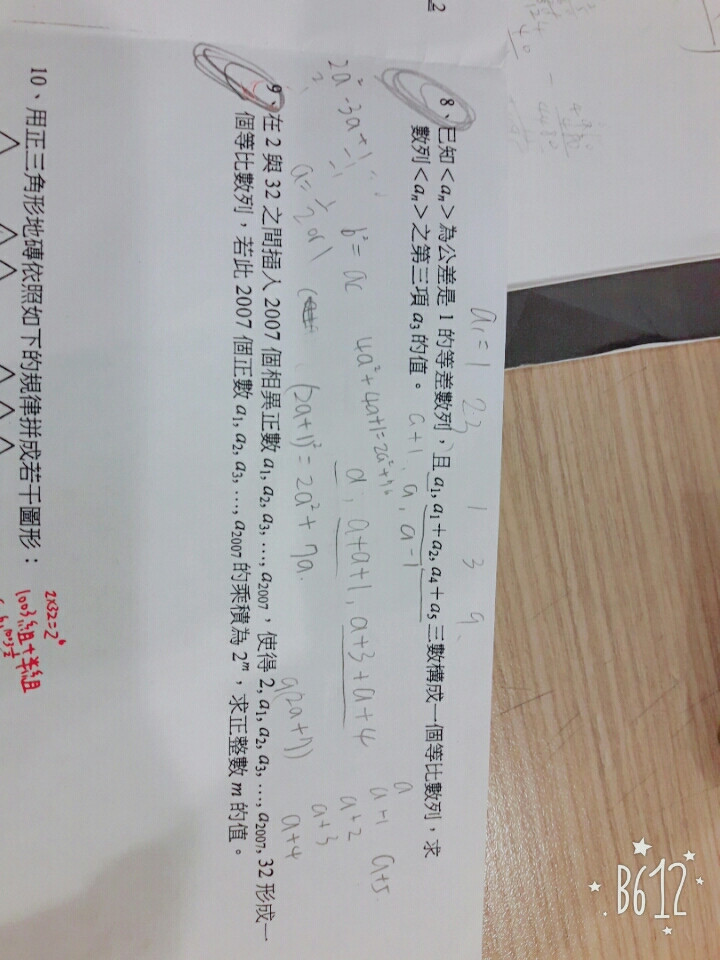 2
8、已知<aₙ>為公差是 1 的等差數列，且 a₁, a₁+a₂, a₄+a₅ 三數構成一個等比數列，求
數列<aₙ>之第三項 a₃ 的值。
a₁=1 2 3
1 3 9
a+1, a, a-1
a, a+a+1, a+3+a+4
4a²+4a+1=2a²+7a
b²=ac
(2a+1)²=2a²+7a.
a(2a+7)
2a²-3a+1
a=½ or 1
a
a+1
a+2
a+3
a+4
a+5
9、在 2 與 32 之間插入 2007 個相異正數 a₁, a₂, a₃, …, a₂₀₀₇，使得 2, a₁, a₂, a₃, …, a₂₀₀₇, 32 形成一
個等比數列，若此 2007 個正數 a₁, a₂, a₃, …, a₂₀₀₇ 的乘積為 2ᵐ，求正整數 m 的值。
2×32=2⁶
1003組+半組
10、用正三角形地磚依照如下的規律拼成若干圖形：
B612